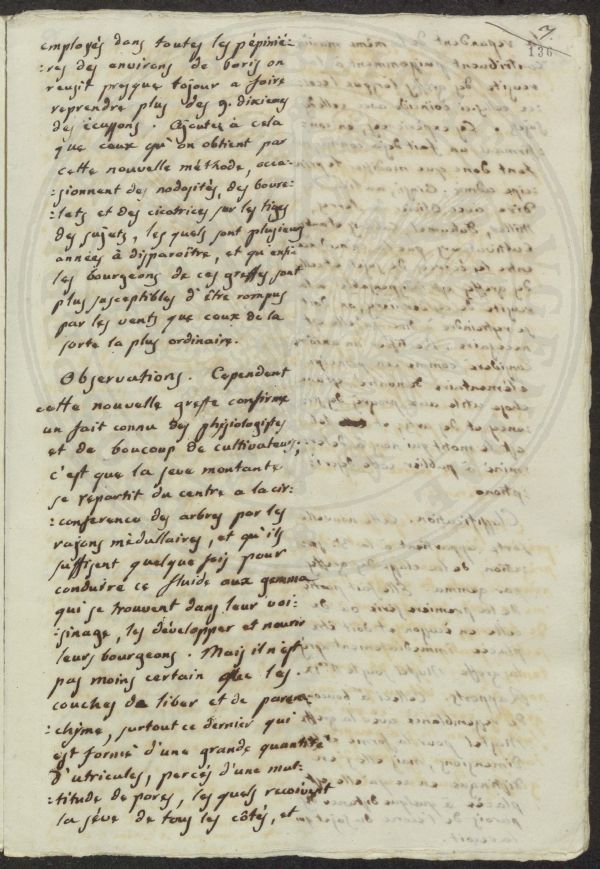 7.
136
employés dans toutes les pépinié:
:res des environs de boris on
reusit presque tojour a foire
reprendre plus des 9. dixiemes
des écussons. Ajoutez à cela
que ceux qu'on obtient par
cette nouvelle méthode, occa:
:sionnent des nodosités, des boure:
:lets et des cicatrices sur les tiges
des sujets, les quels sont plusieurs
années à disparoître, et qu'enfin
les bourgeons de ces greffes sont
plus susceptibles d'être rompus
par les vents que ceux de la
sorte la plus ordinaire.
Observations. Cependent
cette nouvelle grefte confirme
un fait connu des phisiologistes
et de boucoup de cultivateurs;
c'est que la seve montante
se repartit du centre a la cir:
:conference des arbres par les
rayons médullaires, et qu'ils
suffisent quelque fois pour
conduire ce fluide aux gemma
qui se trouvent dans leur voi:
:sinage, les développer et nourir
leurs bourgeons. Mais il n'est
pas moins certain que les
couches de liber et de paren:
:chyme, surtout ce dernier qui
est formé d'une grande quantité
d'utricules, percés d'une mul:
:titude de pores, les quels reçoivent
la séve de tous les côtés, et